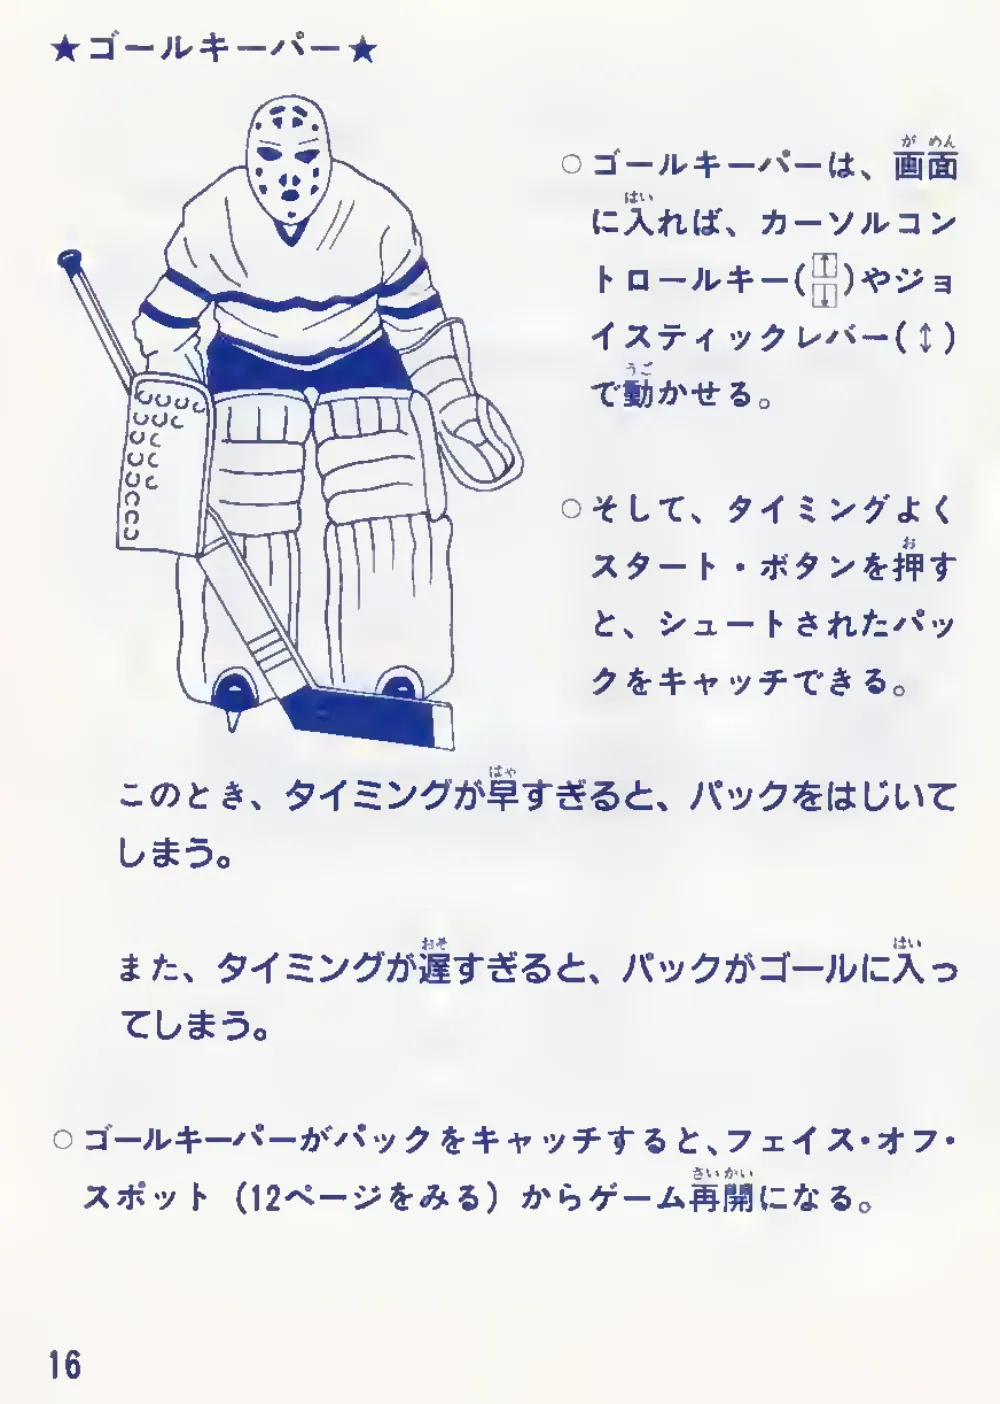 ★ゴールキーパー★
○ゴールキーパーは、画面
に入れば、カーソルコン
トロールキー(↑↓)やジョ
イスティックレバー(↕)
で動かせる。
○そして、タイミングよく
スタート・ボタンを押す
と、シュートされたパッ
クをキャッチできる。
このとき、タイミングが早すぎると、パックをはじいて
しまう。
また、タイミングが遅すぎると、パックがゴールに入っ
てしまう。
○ゴールキーパーがパックをキャッチすると、フェイス・オフ・
スポット(12ページをみる)からゲーム再開になる。
16